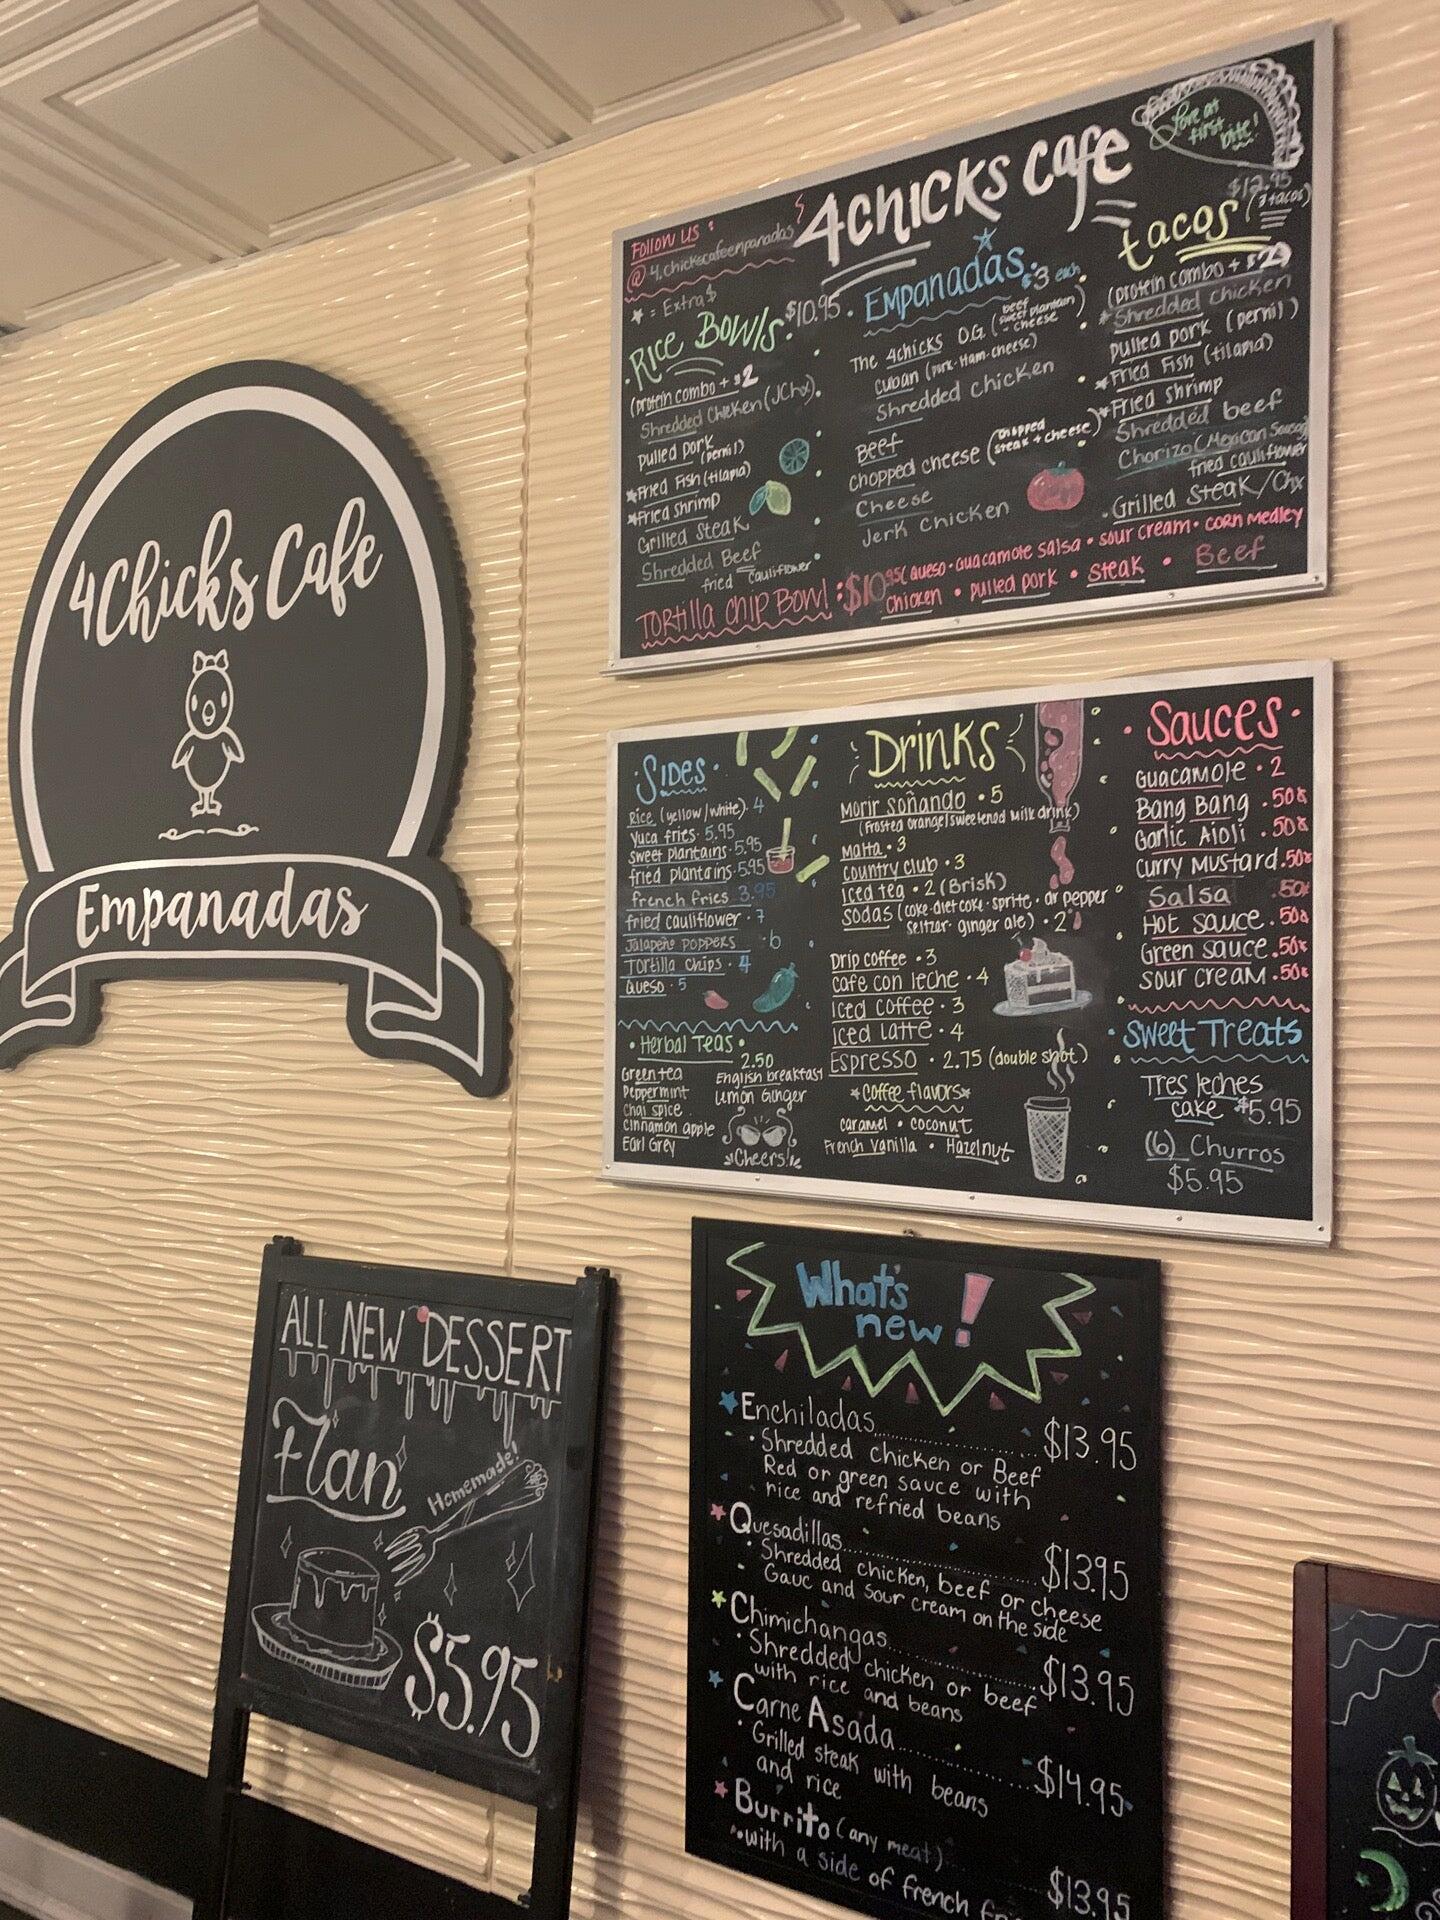 4Chicks Cafe
Empanadas
4chicks cafe
Love at
first
bite!
Follow us:
@4.chickscafeempanadas
★ = Extra $
Rice Bowls $10.95
(protein combo + $2
Shredded Chicken (JChx)
pulled pork (pernil)
★Fried Fish (tilapia)
★Fried shrimp
Grilled Steak
Shredded Beef
fried cauliflower
Empanadas $3 each
The 4chicks O.G (beef sweet plantain - cheese)
Cuban (pork-Ham-cheese)
Shredded chicken
Beef
chopped cheese (chopped steak + cheese)
Cheese
Jerk chicken
$12.95
tacos (3 tacos)
(protein combo + $2)
★Shredded chicken
pulled pork (pernil)
★Fried Fish (tilapia)
★Fried shrimp
Shredded beef
Chorizo (Mexican Sausage)
fried cauliflower
Grilled Steak/Chx
Tortilla chip Bowl: $10.95 (queso · Guacamole salsa · sour cream · corn medley
chicken • pulled pork • steak • Beef
Sides
Rice (yellow/white) · 4
Yuca fries · 5.95
sweet plantains · 5.95
fried plantains · 5.95
french fries 3.95
fried cauliflower · 7
Jalapeño poppers · 6
Tortilla chips · 4
queso · 5
• Herbal Teas •
2.50
Green tea
Peppermint
Chai spice
cinnamon apple
Earl Grey
English breakfast
Lemon Ginger
Cheers!
Drinks
Morir soñando · 5
(frosted orange/sweetened milk drink)
Malta · 3
country club · 3
Iced tea · 2 (Brisk)
Sodas (coke-diet coke · sprite · dr pepper
seltzer · ginger ale) · 2
Drip coffee · 3
cafe con leche · 4
Iced coffee · 3
Iced latte · 4
Espresso · 2.75 (double shot)
★coffee flavors★
caramel • coconut
French Vanilla • Hazelnut
• Sauces •
Guacamole · 2
Bang Bang · .50¢
Garlic Aioli · .50¢
Curry Mustard .50¢
Salsa .50¢
Hot sauce .50¢
Green sauce .50¢
sour cream .50¢
• Sweet Treats
Tres leches
cake $5.95
(6) Churros
$5.95
ALL NEW DESSERT
Flan
Homemade!
$5.95
What's
new!
★Enchiladas.......... $13.95
• Shredded chicken or Beef
Red or green sauce with
rice and refried beans
★Quesadillas.......... $13.95
• Shredded chicken, beef or cheese
• Gauc and sour cream on the side
★Chimichangas.......... $13.95
• Shredded chicken or beef
with rice and beans
★Carne Asada.......... $14.95
• Grilled steak with beans
and rice
★Burrito (any meat) $13.95
• with a side of french